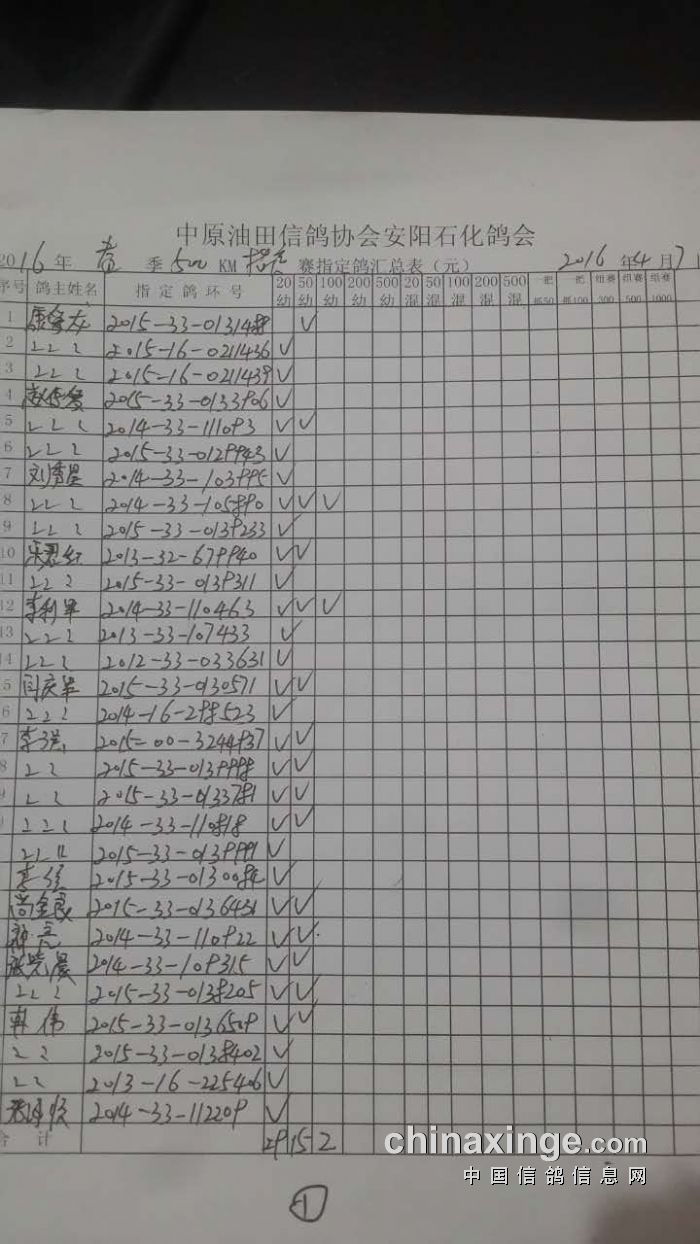 中原油田信鸽协会安阳石化鸽会
2016 年 春 季 500 KM 指定 赛指定鸽汇总表（元） 2016 年 4 月 7
序号 鸽主姓名 指定鸽环号 20幼 50幼 100幼 200幼 500幼 20混 50混 100混 200混 500混 一把抓50 一把抓100 组赛300 组赛500 组赛1000
1 2015-33-0131488 √
2 ζζζ 2015-16-0211436 √
3 ζζζ 2015-16-0211439 √
4 2015-33-0133906 √
5 ζζζ 2014-33-111093 √ √
6 ζζζ 2015-33-0129943 √
7 刘秀星 2014-33-103995 √
8 ζζζ 2014-33-105890 √ √ √
9 ζζζ 2015-33-0139233 √
10 2013-32-679940 √ √
11 ζζζ 2015-33-0139311 √
12 李利军 2014-33-110463 √ √ √
13 ζζζ 2013-33-107433 √
14 ζζζ 2012-33-033631 √
5 闫庆军 2015-33-0130571 √ √
6 ζζζ 2014-16-298523 √
7 李强 2015-00-3244937 √ √
8 ζζ 2015-33-0139998 √ √
ζζ 2015-33-0133781 √ √
ζζζ 2014-33-110818 √ √
2015-33-0139991 √
李强 2015-33-0130084 √
尚金良 2015-33-0136451 √ √
2014-33-110922 √ √
张晓晨 2014-33-109315 √ √
ζζζ 2015-33-0138205 √ √
韩伟 2015-33-0136509 √ √
ζζ 2015-33-0138402 √
ζζ 2013-16-225406 √
2014-33-112209 √
合计 29 15 2
chinaxinge.com
中国信鸽信息网
①